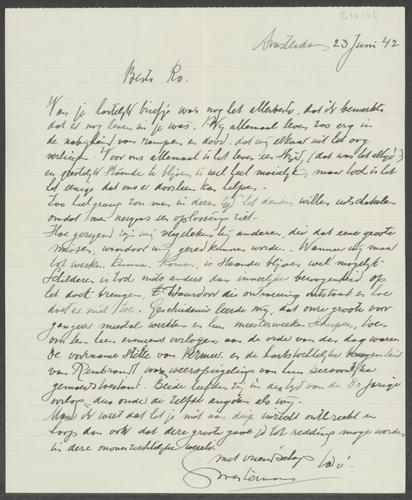 Amsterdam 23 Juni 42
Beste Ro.
Van je hartelijk briefje was nog het allerbeste, dat ik bemerkte
dat er nog leven in je was. Wij allemaal leven zoo erg in
de nabijheid van rampen en dood, dat wij elkaar uit het oog
verliezen. Voor ons allemaal is het leven een strijd, (dat was het altijd)
en geestelijk staande te blijven is wel heel moeilijk, maar toch is het
het eenige dat ons er doorheen kan helpen.
Zoo heel graag zou men in deren tijd het denken willen uitschakelen
omdat men nergens een oplossing ziet.
Hoe gezegend zijn wij vergeleken bij anderen, die dat eene groote
missen, waardoor wij gered kunnen worden. Wanneer wij maar
tot werken kunnen komen, is staande blijven wel mogelijk.
Schilderen is toch niets anders dan innerlijke bewogenheid op
het doek brengen. Waardoor die ontroering ontstaat en hoe
doet er niet toe. Geschiedenis leerde mij, dat onze groote voor-
gangers meestal werkten en hun meesterwerken schiepen, toen
om hen heen eveneens oorlogen aan de orde van den dag waren.
De voorname stilte van Vermeer en de hartstochtelijke bewogenheid
van Rembrandt waren weerspiegeling van hun persoonlijke
gemoedstoestand. Beide leefden zij in den tijd van de 80 jarige
oorlog, dus onder de zelfde angsten als wij.
dat het je niet aan diep inzicht ontbreekt en
hoop dan ook dat deze groote gave je tot redding moge worden
in deze onoverzichtelijke wereld.
met vriendschap